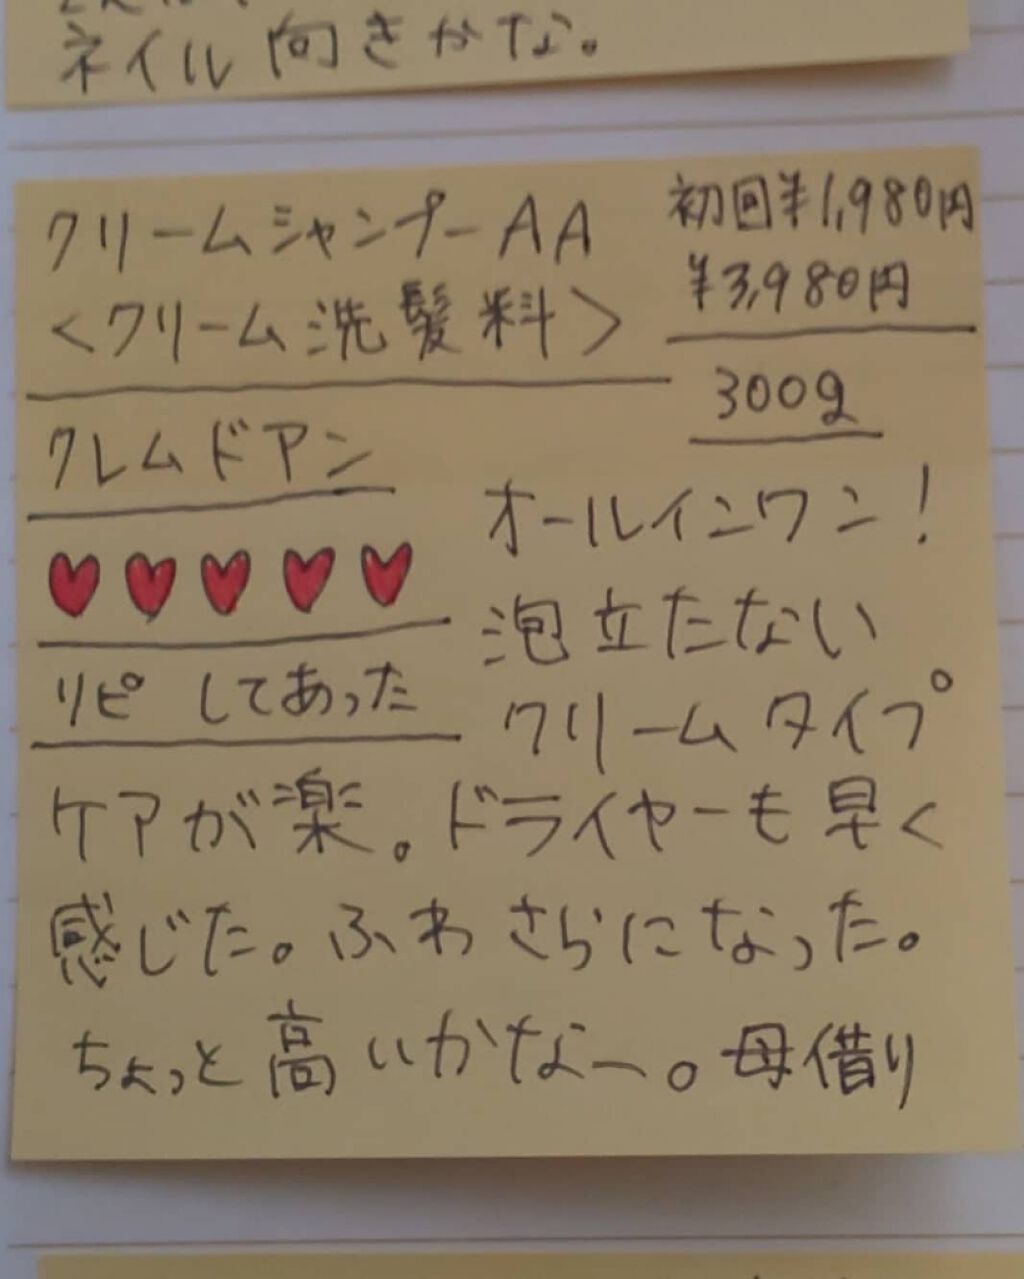 ネイル向きかな。
クリームシャンプーAA
<クリーム洗髪料>
初回¥1,980円
¥3,980円
300g
クレムドアン
リピしてあった
オールインワン!
泡立たない
クリームタイプ
ケアが楽。ドライヤーも早く
感じた。ふわさらになった。
ちょっと高いかなー。母借り